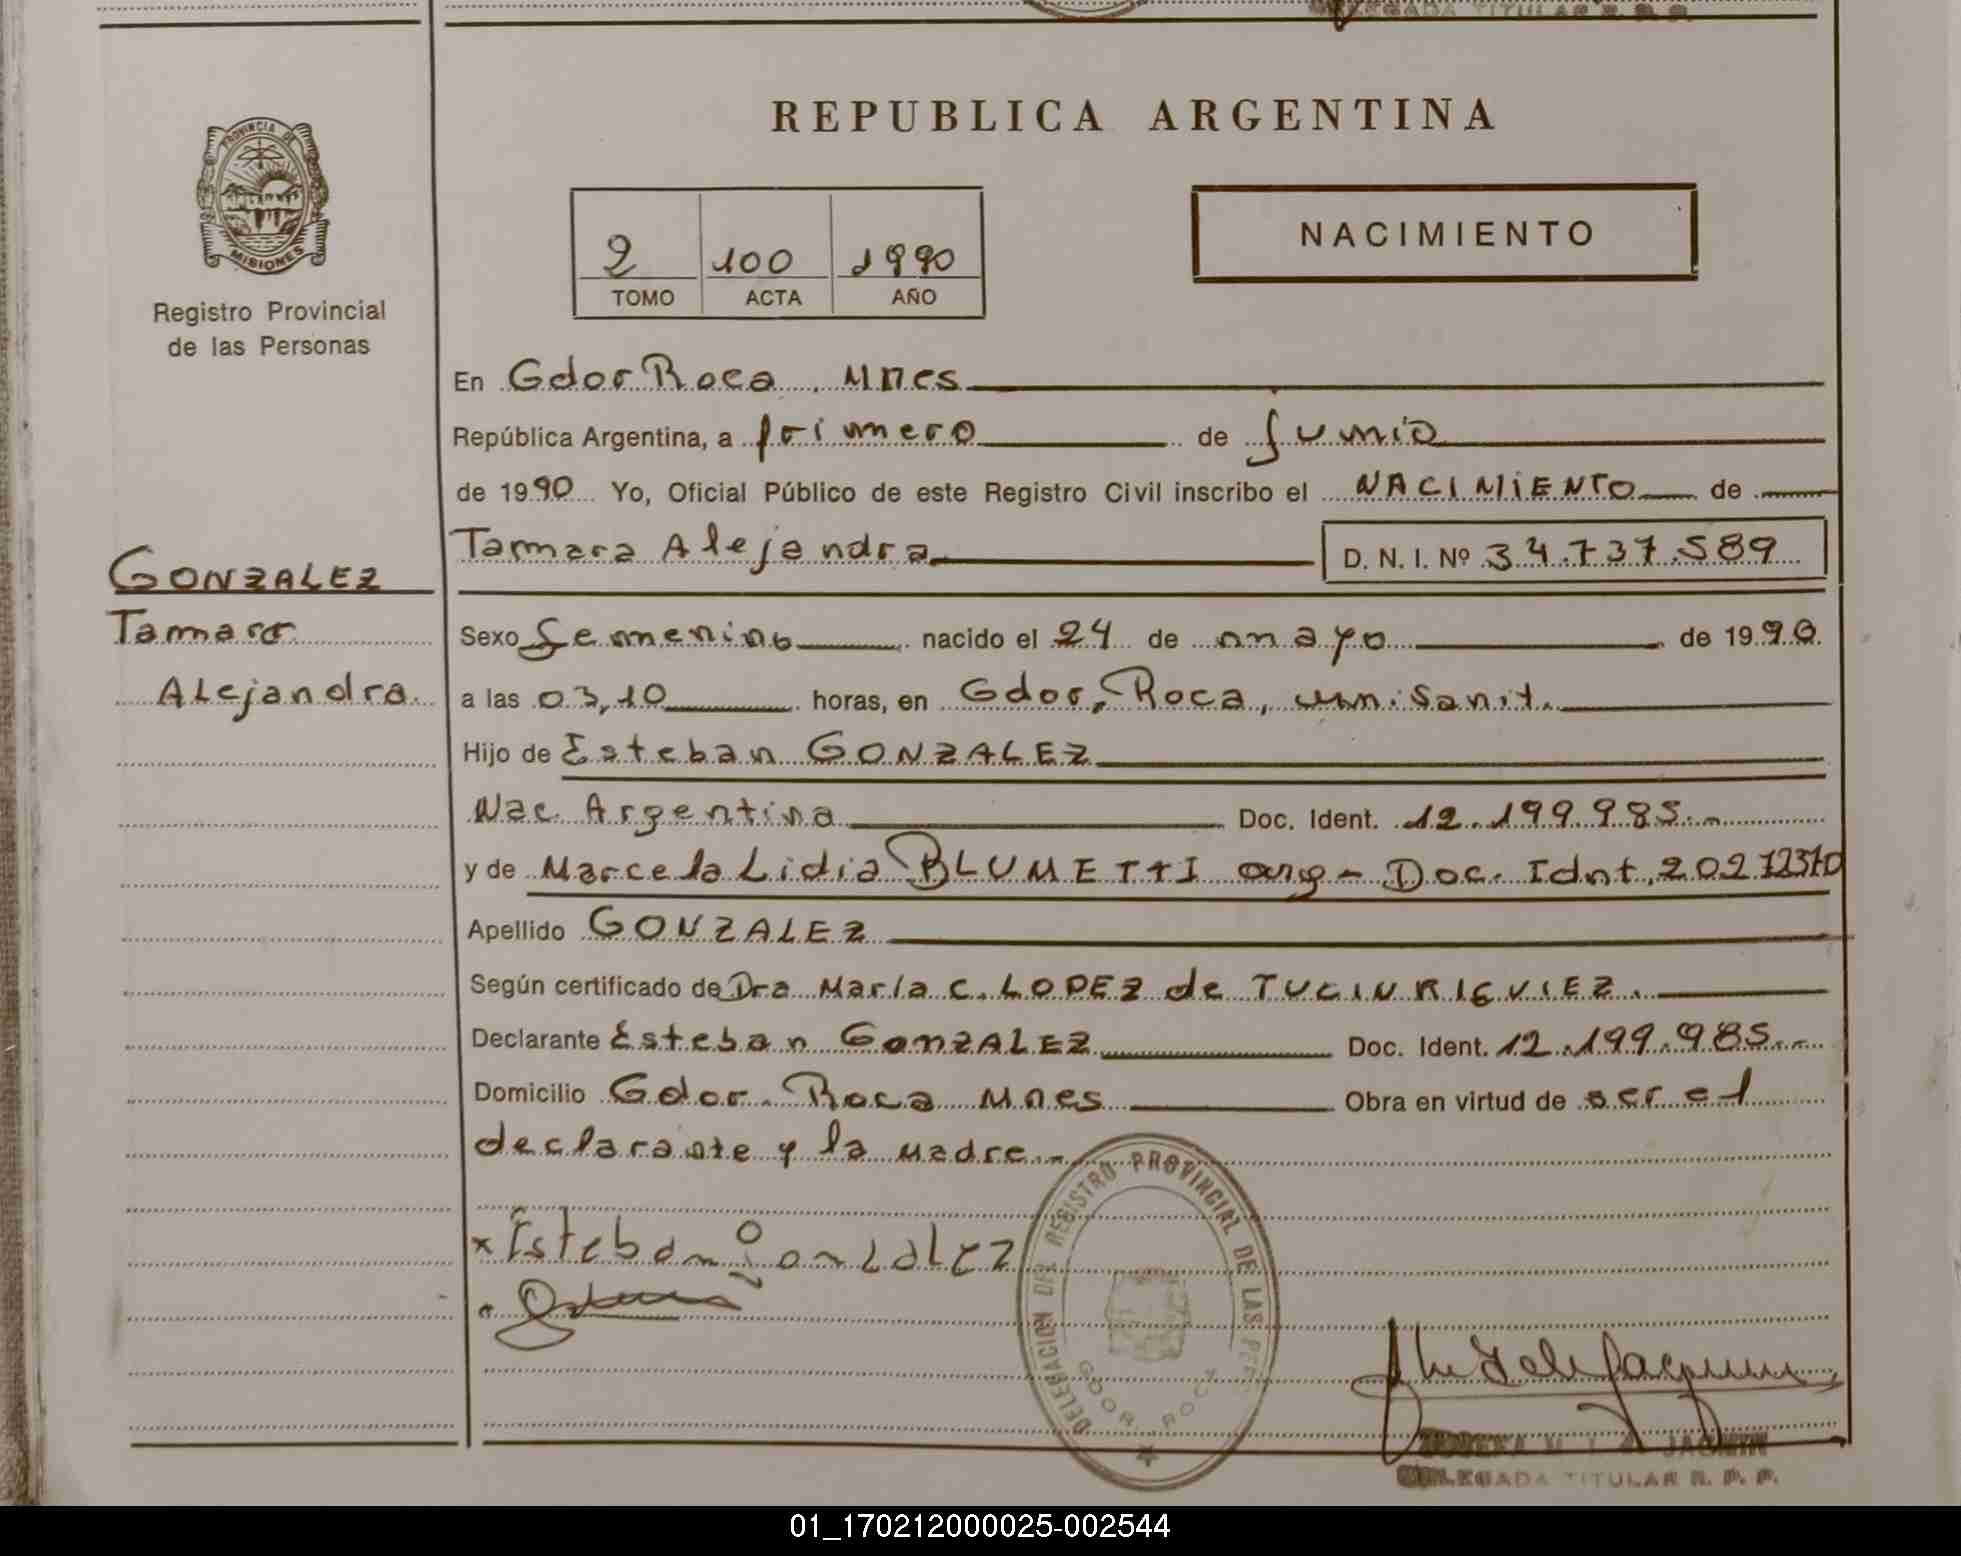 DELEGADA TITULAR R. P. P.
REPUBLICA ARGENTINA
PROVINCIA DE
MISIONES
Registro Provincial
de las Personas
2 100 1990
TOMO ACTA AÑO
NACIMIENTO
En Gdor Roca, Mnes
República Argentina, a primero de Junio
de 1990 Yo, Oficial Público de este Registro Civil inscribo el NACIMIENTO de
Tamara Alejandra D. N. I. Nº 34.737.589
GONZALEZ
Tamara
Alejandra.
Sexo Femenino nacido el 24 de mayo de 1990.
a las 03,10 horas, en Gdor, Roca, uni.Sanit.
Hijo de Esteban GONZALEZ
Nac. Argentina Doc. Ident. 12.199.985.-
y de Marcela Lidia BLUMETTI arg- Doc. Idnt. 20272370
Apellido GONZALEZ
Según certificado de Dra María C. LOPEZ de
Declarante Esteban GonzALEZ Doc. Ident. 12.199.985.-
Domicilio Gdor. Roca Mnes Obra en virtud de ser el
declarante y la madre.-
x Esteban Gonzalez
DELEGACION DEL REGISTRO PROVINCIAL DE LAS PERS
GDOR. ROCA
JACMIN
DELEGADA TITULAR R. P. P.
01_170212000025-002544